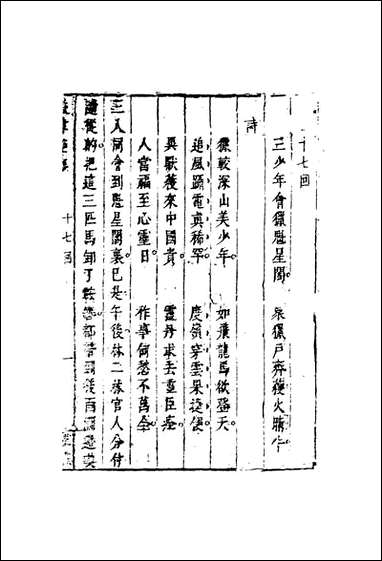 十七回
三少年會獵魁星閣 衆獵戶齊獲火睛牛
詩
獵較深山美少年 如飛龍馬欲登天
追風躡電真稀罕 度嶺穿雲果
異獸獲來中國貴 靈丹求去重臣
人當福至心靈日 作事何愁不萬全
三人同會到魁星閣裏已是午後林二官人分付
從的把這三匹馬卸了鞍轡都帶到後面
十七回